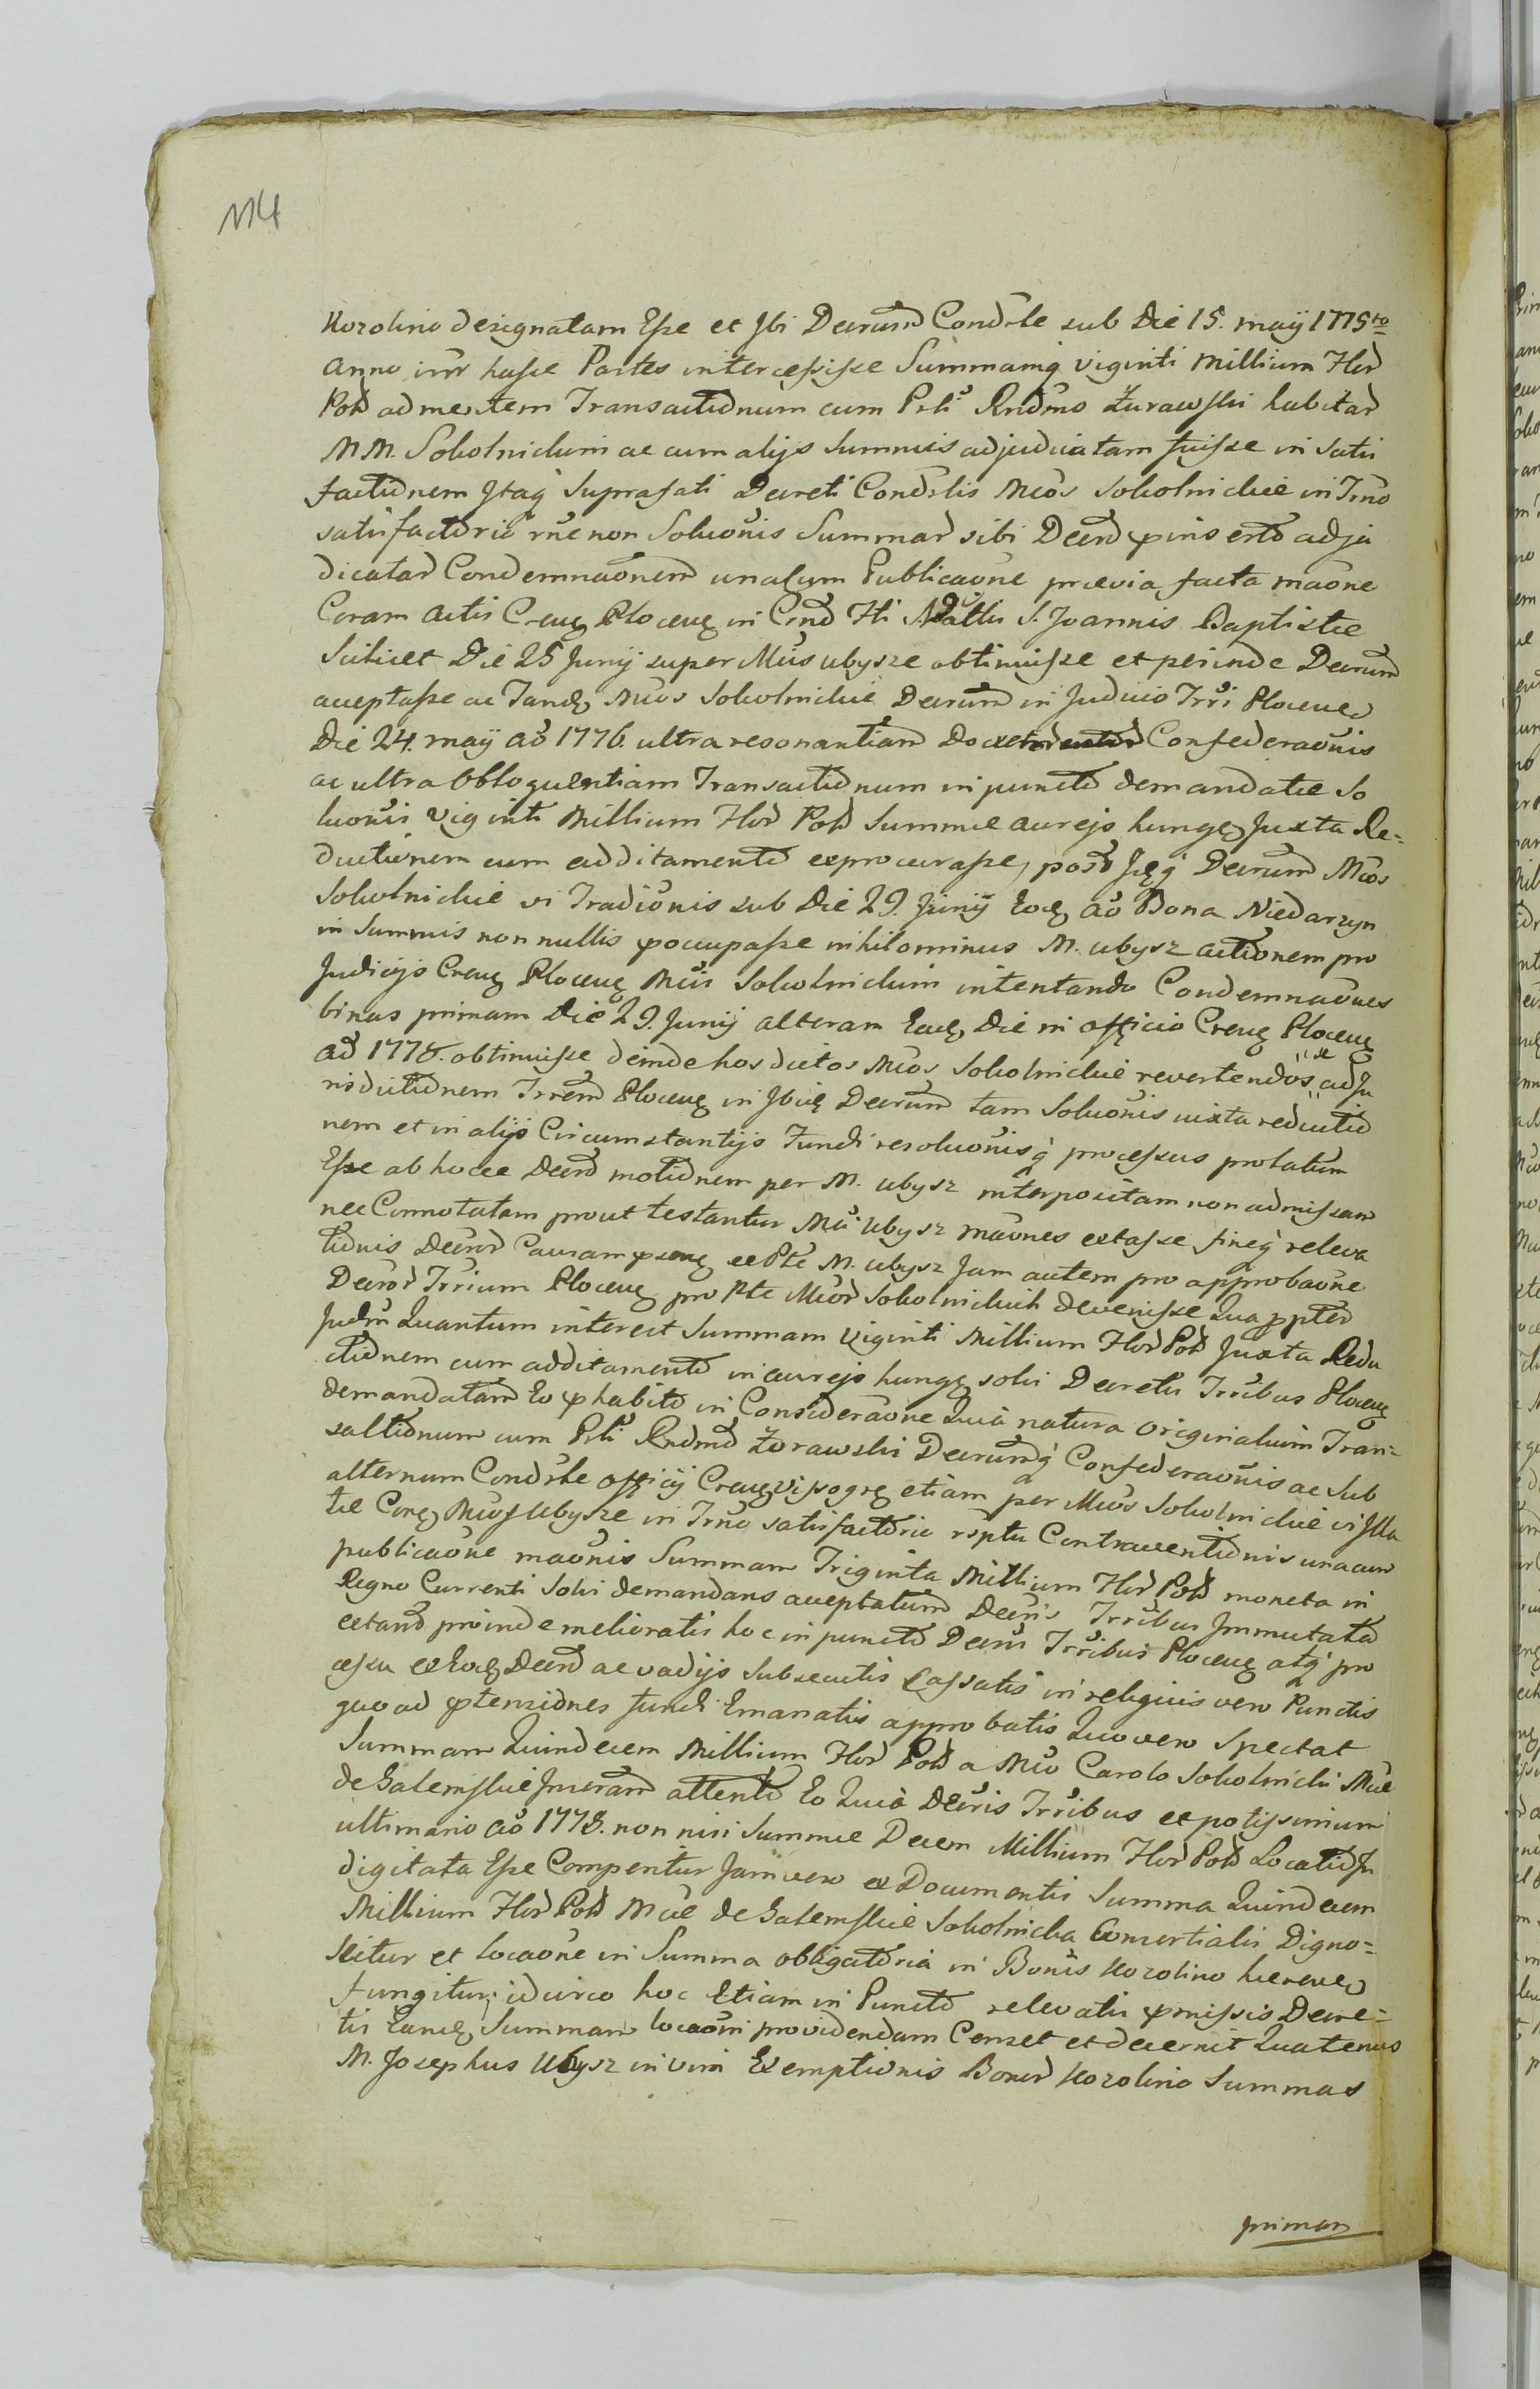 114
Korolino designatam Esse et Ibi Decrum Condrle sub Die 15. maij 1775to
Anno inr hasce Partes intercessisse Summamq̃ viginti Millium Flor
Pold ad mentem Transactionum cum Prli Rndmo Żurawski habitar
M.M. Sokolnickim ac cum alijs Summis adjudicatam fuisse in satis
factionem Itaq̃ Suprafati Decreti Condrlis Mcos Sokolnickie in Trno
satisfactorio rñe non Soluõnis Summar sibi Decro pinserto adju
dicatar Condemnaõnem una cum Publicaõne prævia facta maõne
Coram Actis Crens Plocens in Crnd Fti Natlis S. Joannis Baptistæ
Scilicet Die 25 Junij super Mcis Ubysze obtinuisse et perinde Decrum
acceptasse ac Tand Mcos Sokolnickie Decrum in Judicio Trri Plocens
Die 24. maij aõ 1776. ultra resonantiam Confederaõnis
ac ultra Obloquentiam Transactionum in puncto demandatæ So
luõnis viginti Millium Flor Pold Summæ aureis hung Juxta Re=
ductionem cum additamento exprocurasse, post Decrum Mcos
Sokolnickie vi Tradiõnis sub Die 29. Junij Eod aõ Bona Niedarzyn
in Summis non nullis poccupasse nihilominus M. Ubysz actionem pro
Judicijs Crens Plocens Mcis Sokolnickim intentando Condemnaõnes
binas primam Die 29. Junij alteram Ead Die in officio Crens Plocens
Aõ 1778. obtinuisse deinde hos dictos Mcos Sokolnickie revertendos se ad Ju
risdictionem Trrem Plocens in Decrum tam Soluõnis iuxta reductio
nem et in alijs Circumstantijs Fundi resoluõnisq̃ processus prolatum
Esse ab hocce Decro motionem per M. Ubysz interpositam non admissam
nec Connotatam prout testantur Mci Ubysz maõnes extasse sineq̃ releva
tionis Decror Causam ex Pte M. Ubysz Jam autem pro approbaõne
Decror Trrium Plocens pro Pte Mcor Sokolnickich devenisse Quappter
Judm Quantum interest Summam viginti Millium Flor Pold Juxta Redu
ctionem cum additamento in aureis hung solvi Decretis Trribus Plocens
demandatam Eo phabito in Consideraõne Quia natura originalium Tran=
sactionum cum Prli Rndmo Żorawski Decrumq̃ Confederaõnis ac Sub
alternum Condrle officij Crens etiam per Mcos Sokolnickie vi Illa
tæ Mcos Ubysze in Trno satisfactorio rsptu Contraventionis una cum
publicaõne maõnis Summam Triginta Millium Flor Pold moneta in
Regno Currenti Solvi demandans acceptatum Decris Trribus Immutata
extand proinde melioratis hoc in puncto Decris Trribus Plocens atq̃ pro
cessu ex Eod Decro ac vadijs Subsecutis Cassatis in reliquis vero Punctis
quo ad ptensiones Fundi Emanatis approbatis Quo vero Spectat
Summam Quindecem Millium Flor Pold a Mco Carolo Sokolnicki Mcæ
de Galemskie attento Eo Quia Decris Trribus et potissimum
ultimario aõ 1778. non nisi Summæ Decem Millium Flor Pold Locatio In
digitata Esse Comperitur Jam vero ex Documentis Summa Quindecem
Millium Flor Pold Mcæ de Galemskie Sokolnicka Consortialis Digno=
scitur et Locaõne in Summa obligatoria in Bonis Korolino
fungitur; idcirco hoc Etiam in Puncto relevatis pmissis Decre=
tis Eand Summam locaõni providendam Censet et decernit Quatenus
M. Josephus Ubysz in vim Exemptionis Bonor Korolino Summas
primam